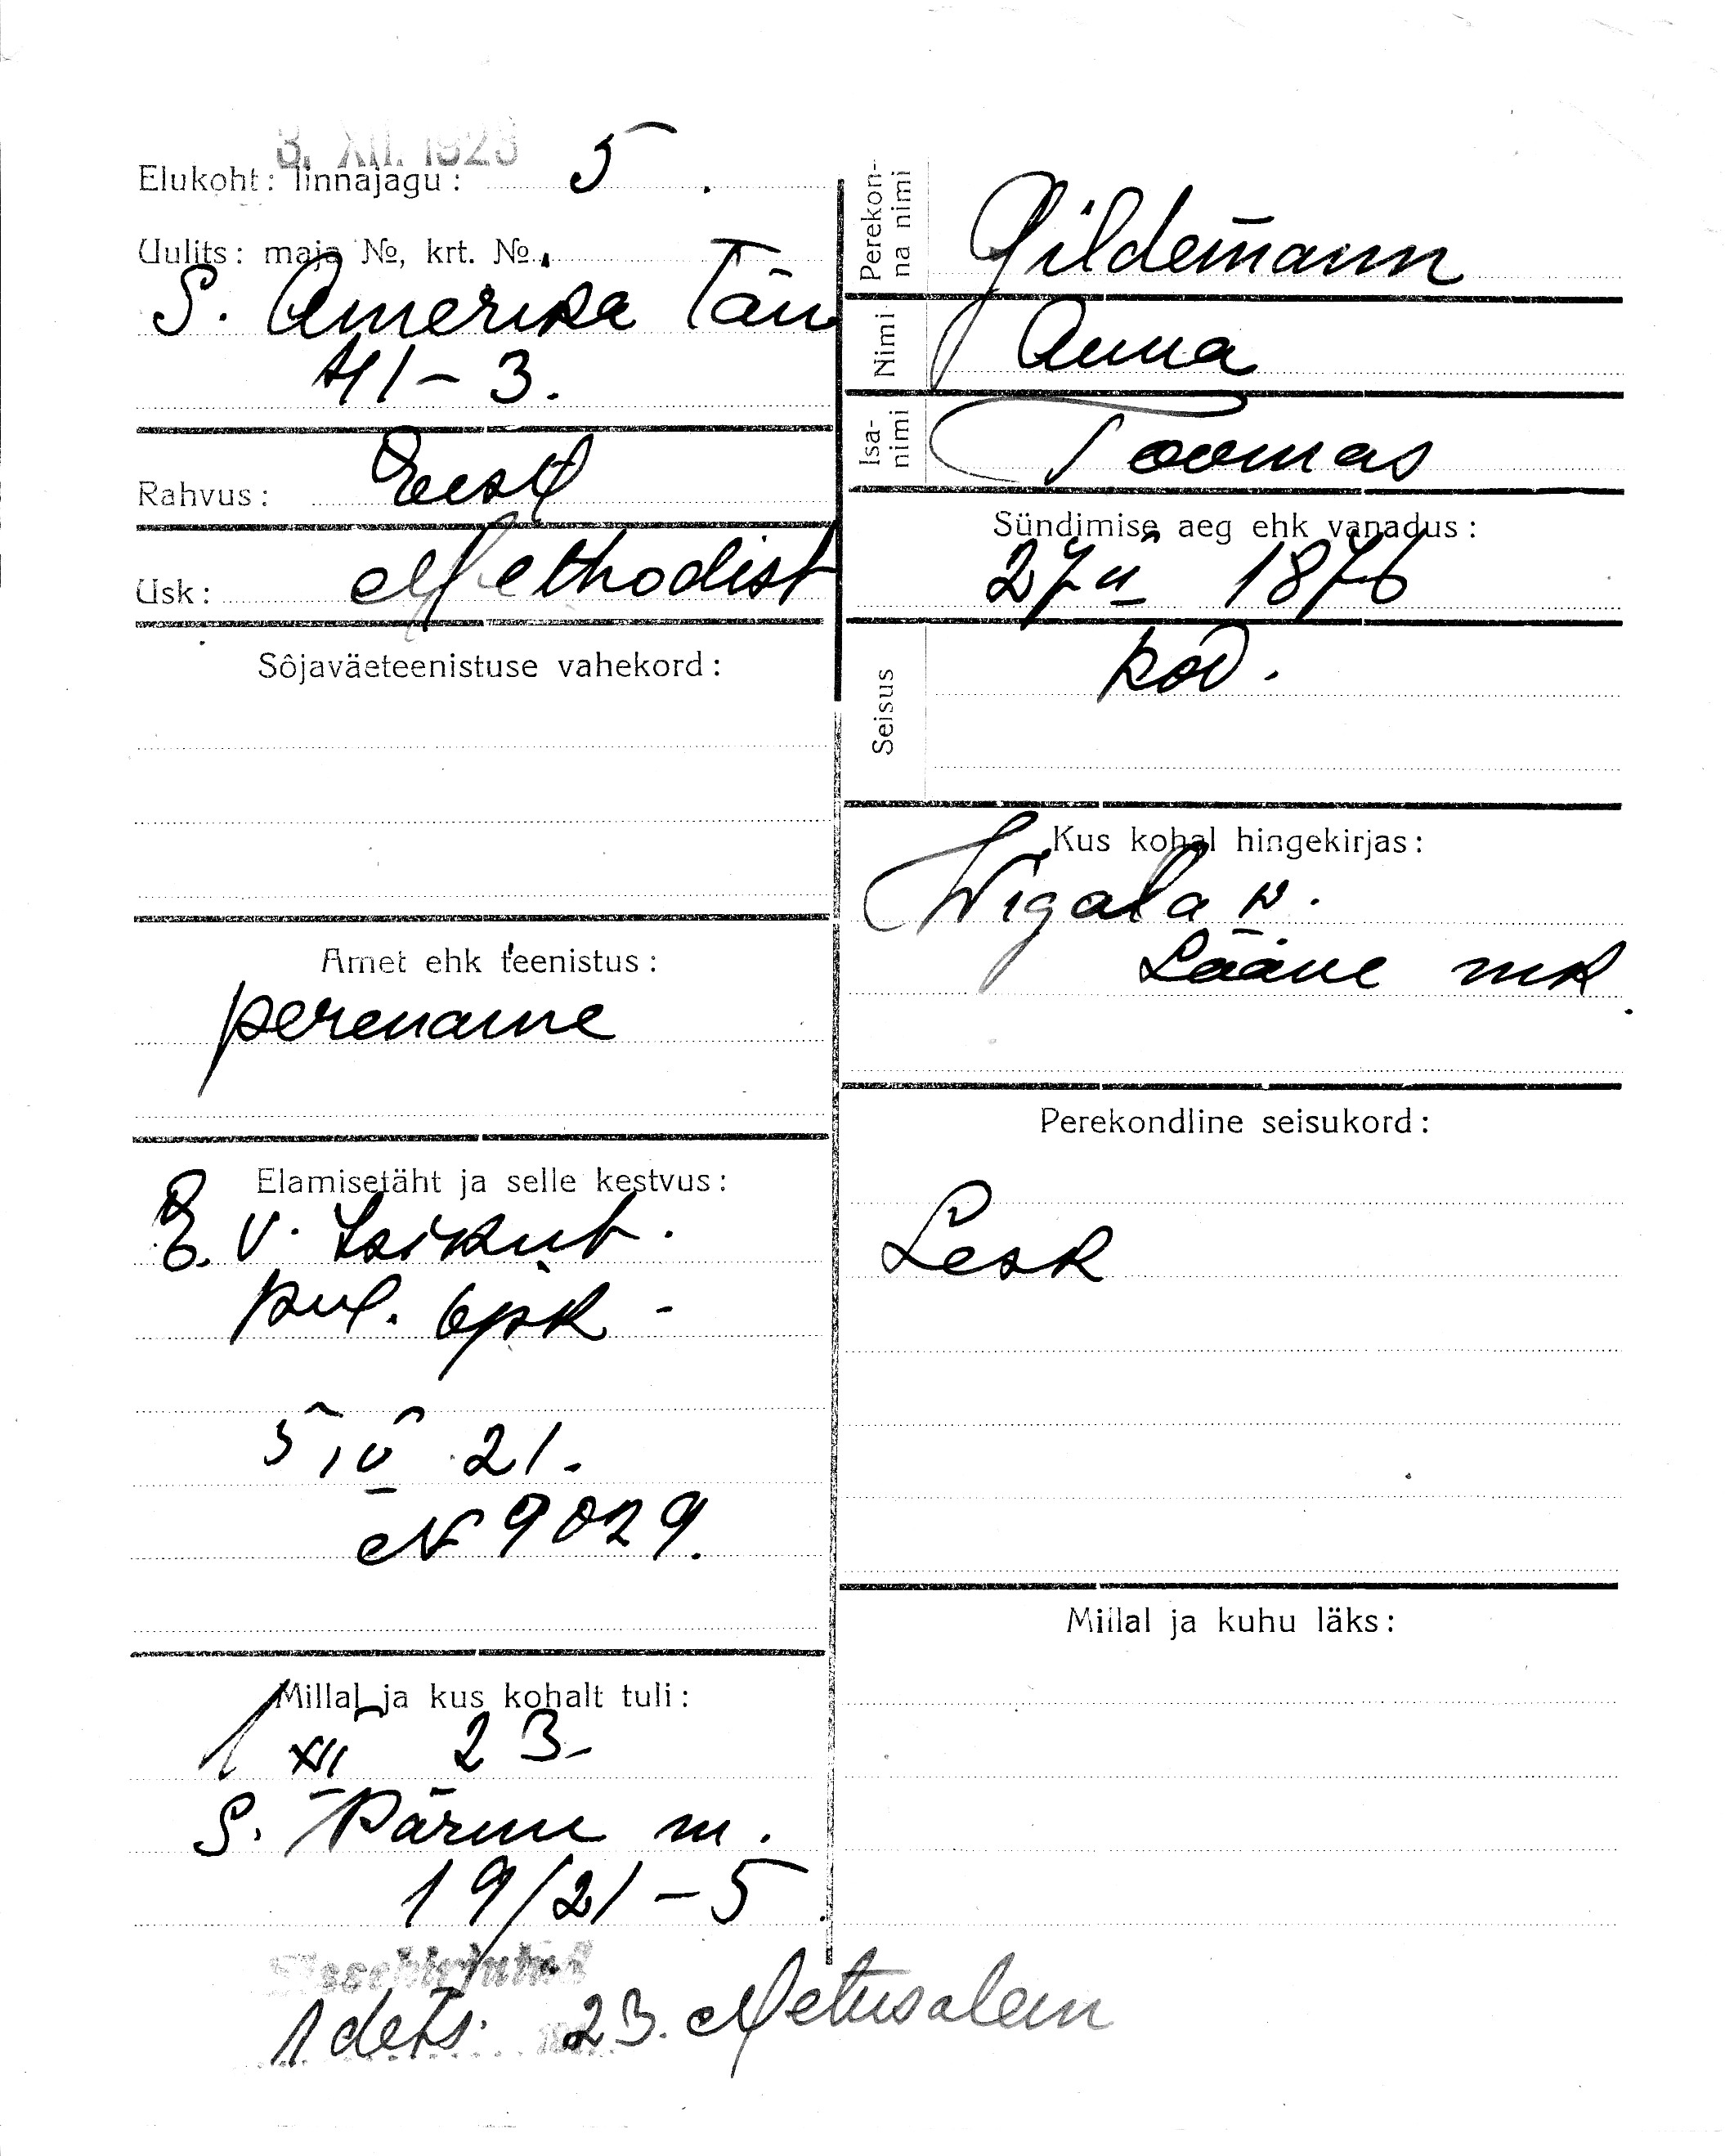 3. XII. 1923
Elukoht: linnajagu: 5.
Uulits: maja №, krt. №.
S. Amerika Tän
41-3.
Rahvus: Eesti
Usk: Methodist
Sôjaväeteenistuse vahekord:
Amet ehk teenistus:
perenaine
Elamisetäht ja selle kestvus:
E. V. Isikut.
5 IV 21.
N 9029.
Millal ja kus kohalt tuli:
1 XII 23
S. Pärnu m.
19/21-5
Sissekirjutud
1 dets. 23. Metusalem
Perekon-
na nimi
Gildemann
Nimi
Anna
Isa-
nimi
Toomas
Sündimise aeg ehk vanadus:
27 II 1876
Seisus
kod.
Kus kohal hingekirjas:
Wigala v.
Lääne mk.
Perekondline seisukord:
Lesk
Millal ja kuhu läks: